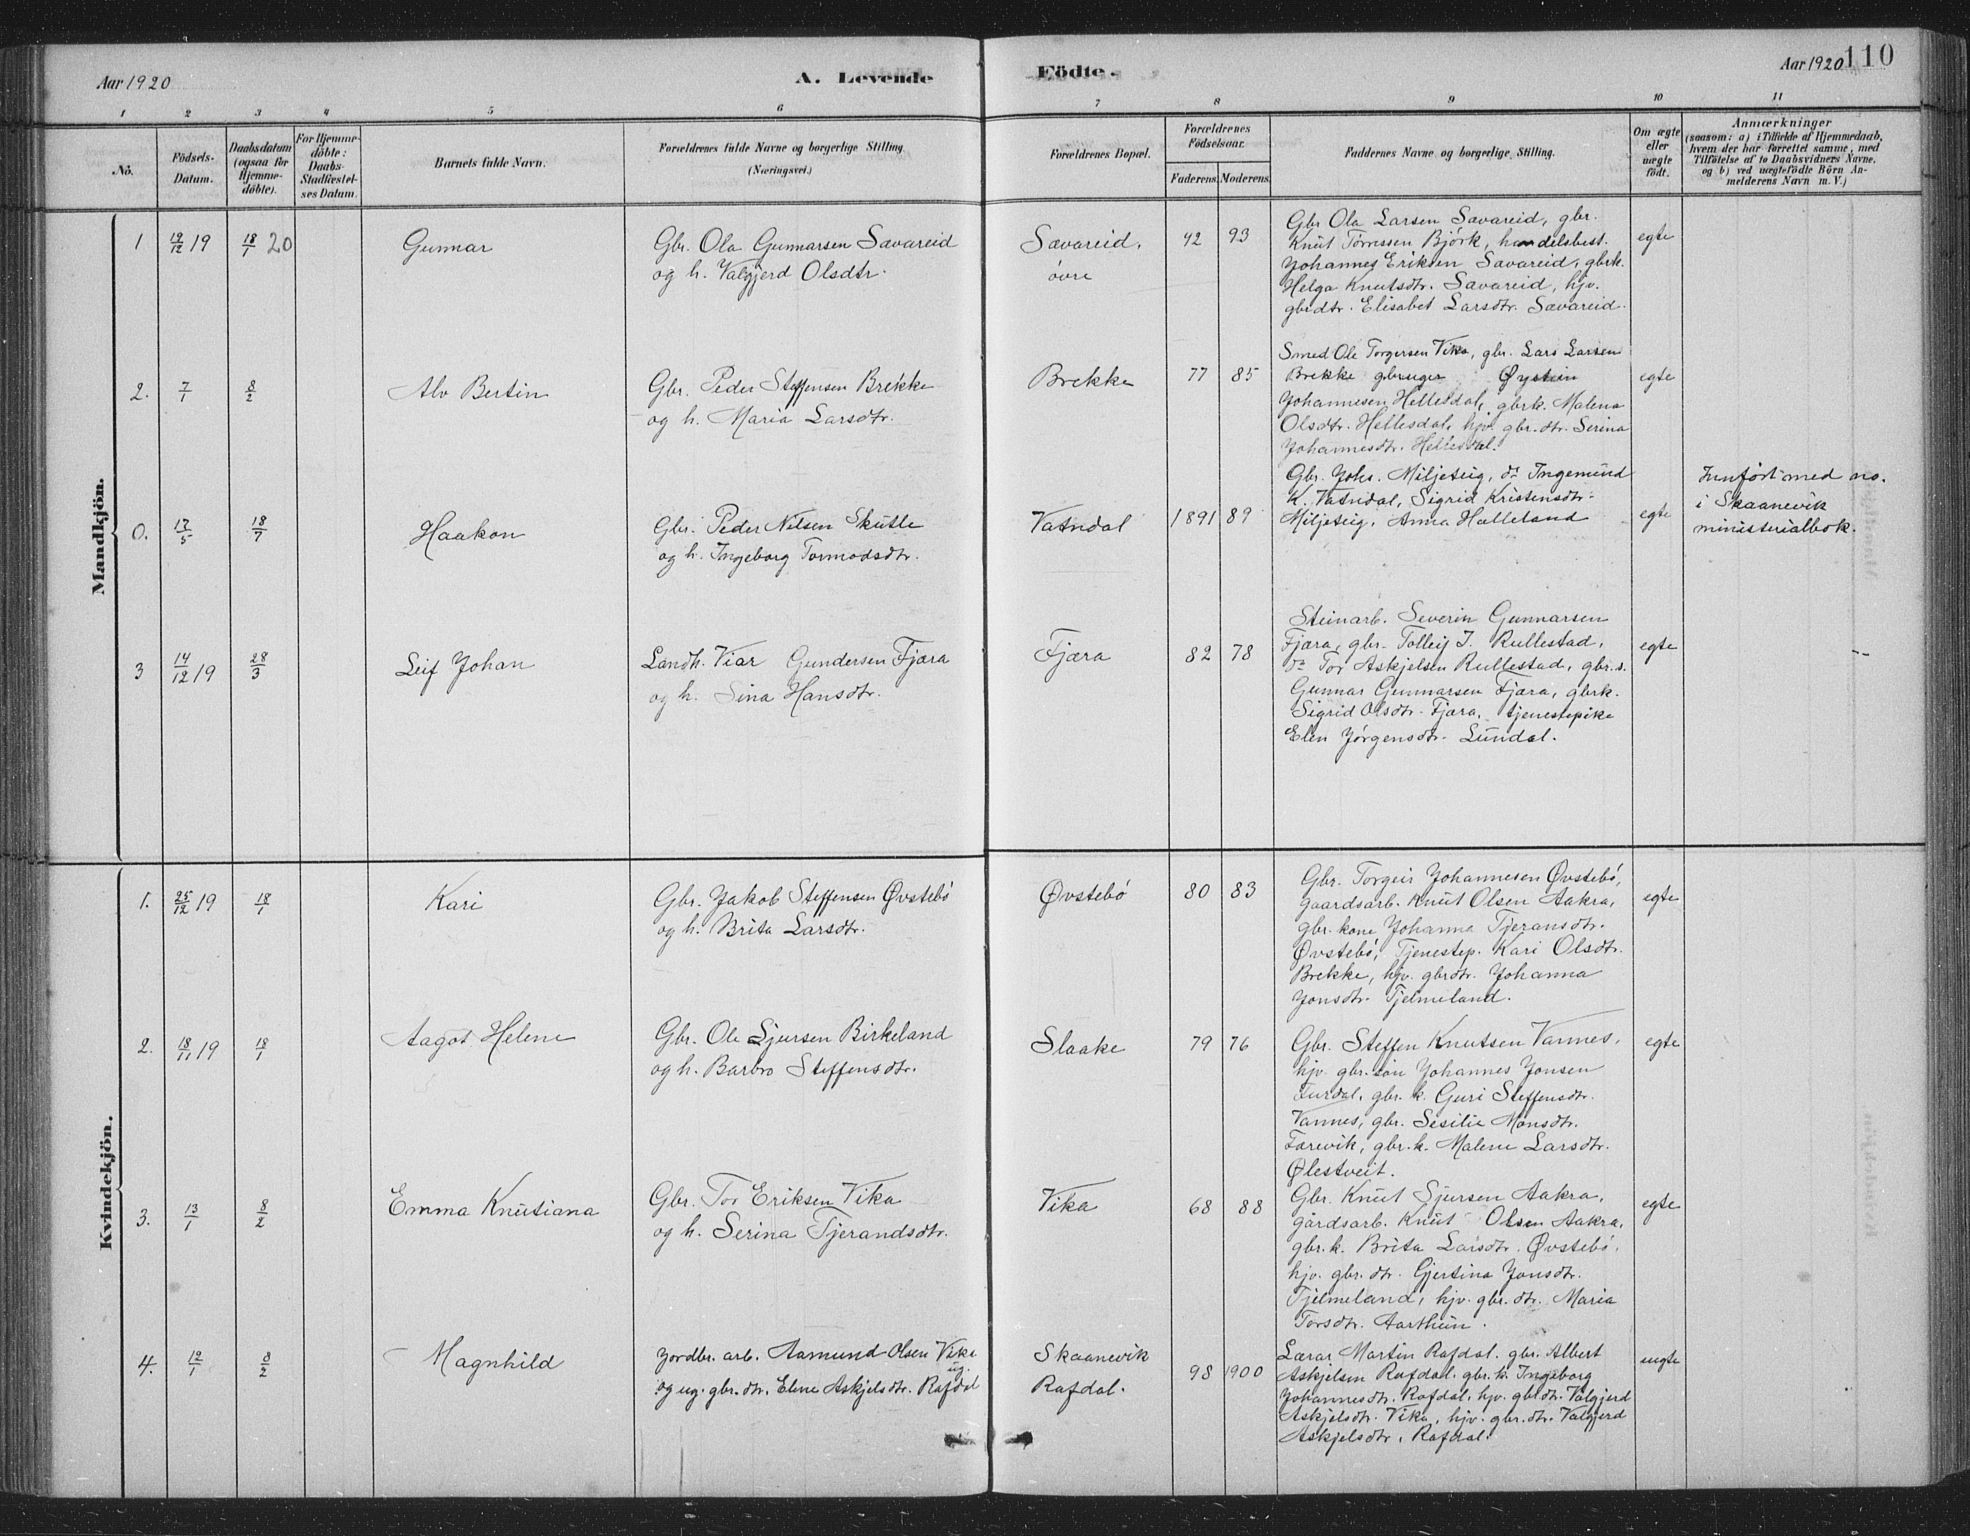 Aar 1920
A. Levende
Födte.
Aar 1920
110
1 2 3 4 5 6 7 8 9 10 11
No.
Födsels-
Datum.
Daabsdatum
(ogsaa for
Hjemme-
döbte).
For Hjemme-
döbte:
Daabs-
Stadfæstel-
ses Datum.
Barnets fulde Navn.
Forældrenes fulde Navne og borgerlige Stilling
(Næringsvei.)
Forældrenes Bopæl.
Forældrenes
Födselsaar.
Faderens. Moderens.
Faddernes Navne og borgerlige Stilling.
Om ægte
eller
uægte
födt.
Anmærkninger
(saasom: a) i Tilfælde af Hjemmedaab,
hvem der har forrettet samme, med
Tilföielse af to Daabsvidners Navne,
og b) ved uægtefödte Börn An-
melderens Navn m. V.)
Mandkjön.
1 19/12 19 18/1 20 Gunnar
Gbr. Ola Gunnarsen Sævareid
og h. Valgjerd Olsdtr.
Sævareid,
övre
92 93
Gbr. Ola Larsen Sævareid, gbr.
Knut Tørresen Björk, handelsbest.
Johannes Eriksen Sævareid, gbrk.
Helga Knutsdtr. Sævareid, hjv.
gbrdtr. Elisabet Larsdtr. Sævareid.
egte
2. 7/1 8/2 Alv Bertin
Gbr. Peder Steffensen Brekke
og h. Maria Larsdtr.
Brekke
77 85
Smed Ole Torgersen Vika, gbr. Lars Larsen
Brekke gbruger Øystein
Johannesen Hellesdal, gbrk. Malena
Olsdtr. Hellesdal, hjv. gbr.dtr. Serina
Johannesdtr. Hellesdal.
egte
0. 17/5 18/7 Haakon
Gbr. Peder Nilsen Skutle
og h. Ingeborg Tormodsdtr.
Vatndal
1891 89
Gbr. Johs. Miljeteig, do Ingemund
K. Vatndal, Sigrid Kristensdtr.
Miljeteig, Anna Hælleland
egte
Innført med no.
i Skaanevik
ministerialbok.
3 14/12 19 28/3 Leif Johan
Landh. Viar Gundersen Fjæra
og h. Sina Hansdtr.
Fjæra
82 78
Steinarb. Severin Gunnarsen
Fjæra, gbr. Tolleif J. Rullestad,
do Tor Askjelsen Rullestad, gbr.s.
Gunnar Gunnarsen Fjæra, gbrk.
Sigrid Olsdtr. Fjæra, tjenestepike
Elen Jörgensdtr. Lundal.
egte
Kvindekjön.
1. 25/12 19 18/1 Kari
Gbr. Jakob Steffensen Øvstebö
og h. Brita Larsdtr.
Øvstebö
80 83
Gbr. Torgeir Johannesen Øvstebö,
gaardsarb. Knut Olsen Aakra,
gbr. kone Johanna Tjeransdtr.
Øvstebö, Tjenestep. Kari Olsdtr.
Brekke, hjv. gbrdtr. Johanna
Jonsdtr. Tjelmeland.
egte
2. 18/11 19 18/1 Aagot Helene
Gbr. Ole Sjursen Birkeland
og h. Barbro Steffensdtr.
Slaake
79 76
Gbr. Steffen Knutsen Vannes,
hjv. gbr. sön Johannes Jonsen
Furdal, gbr. k. Guri Steffensdtr.
Vannes, gbr. Sesilie Monsdtr.
Færevik, gbr. k. Malene Larsdtr.
Ølestveit.
egte
3. 13/1 8/2 Emma Knutiana
Gbr. Tor Eriksen Vika
og h. Serina Tjerandsdtr.
Vika
68 88
Gbr. Knut Sjursen Aakra,
gårdsarb. Knut Olsen Aakra,
gbr. k. Brita Larsdtr. Øvstebö,
hjv. gbr. dtr. Gjertina Jonsdtr.
Tjelmeland, hjv. gbr. dtr. Maria
Torsdtr. Aarthun.
egte
4. 12/1 8/2 Magnhild
Jordbr. arb. Aamund Olsen Vika
ug.
og ug. gbr. dtr. Elene Askjelsdtr. Rafdal
Skaanevik
Rafdal.
98 1900
Lærar Martin Rafdal. gbr. Albert
Askjelsen Rafdal. gbr. k. Ingeborg
Johannesdtr. Rafdal, hjv. gbr.dtr. Valgjerd
Askjelsdtr. Vika, hjv. gbr. dtr. Valgjerd
Askjelsdtr. Rafdal.
uegte